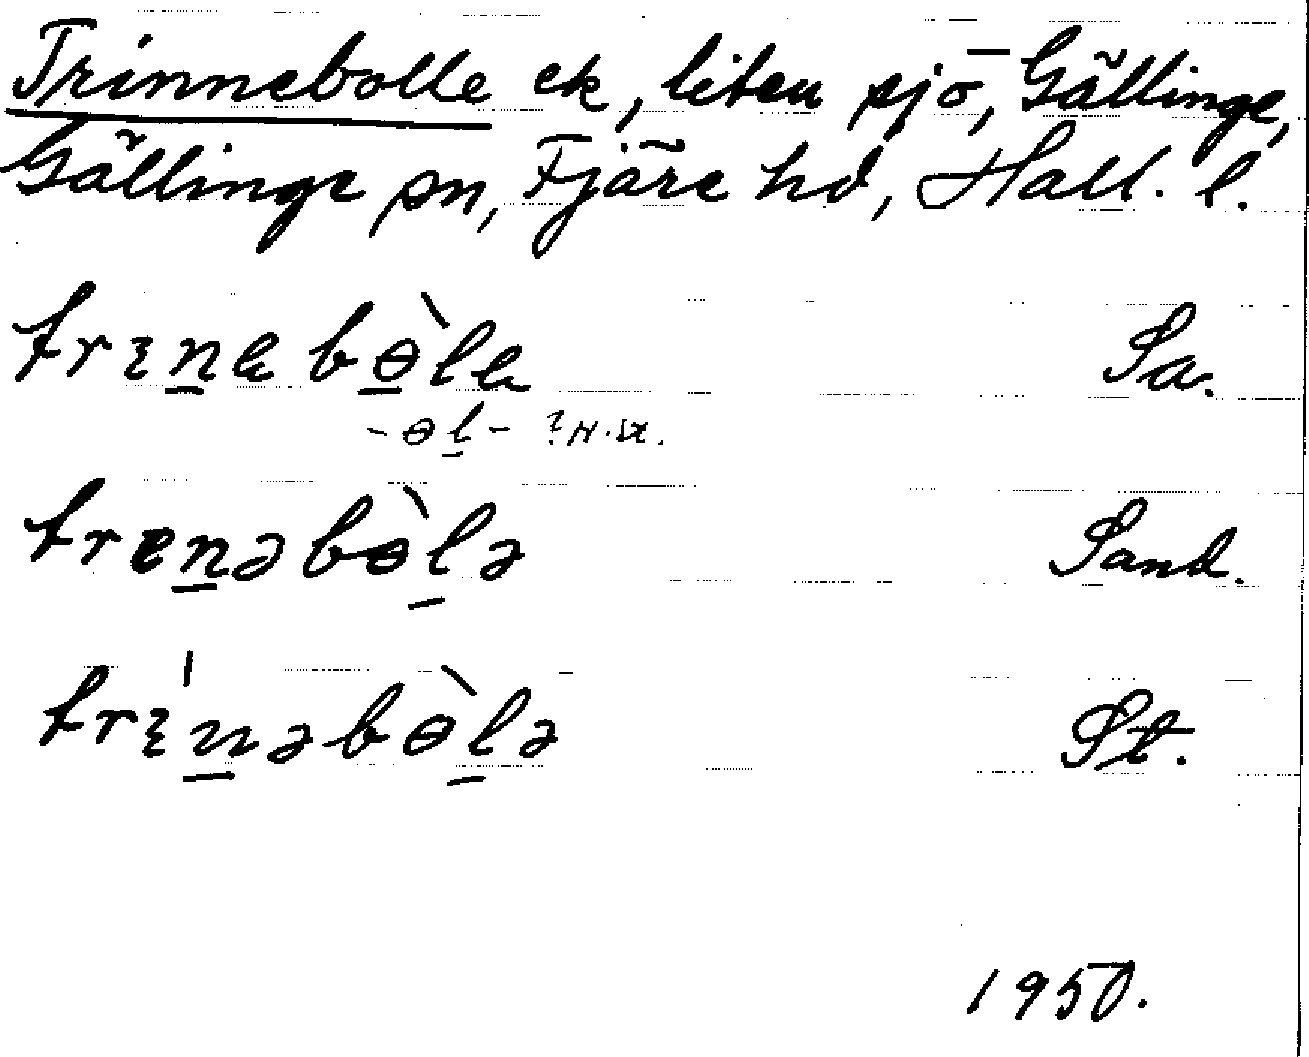 Trinnebolle ek, liten sjö, Gällinge,
Gällinge sn, Fjäre hd, Hall. l.
trɪn̲eb⍬̲̀le Sa.
-ɵl̲-
tren̲əbɵ̀l̲ə Sand.
trɪ́n̲əbɵ̀l̲ə St.
1950.